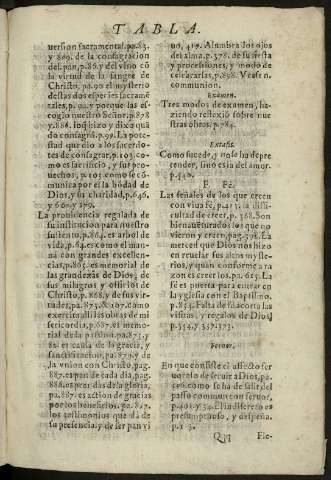 TABLA.
uersion sacramental. pa. 83.
y 869. de la consagracion
del pan, p. 86. y del vino cõ
la virtud de la sangre de
Christo, pa. 90. el mysterio
destas dos especies sacramẽ
tales, p. 92. y porque las es-
cogio nuestro Señor, p. 878
y 886. lo q̃ hizo y dixo quã
do consagrò. p. 99. La potes-
stad que dio a los sacerdo-
tes de consagrar, p. 103. co-
mo es sacrificio, y sus pro-
uechos, p. 105. como se co-
munica por el la bõdad de
Dios, y su charidad, p. 646.
y 660. y 279.
La prouidencia regalada de
su institucion para nuestro
sustento, p. 864. es arbol de
vida, p. 64. es como el man-
na con grandes excellen-
cias, p. 865. es memorial de
las grandezas de Dios, de
sus milagros y officios de
Christo, p. 868. y de sus vir-
tudes, pa. 873. & 297. como
exercita alli las obras de mi
sericordia, p. 887. es memo-
rial de la passion. pa. 871. y
85. es causa de la gracia, y
sanctificacion, pa. 873. y de
la vnion con Christo, pag.
887. es pan de cada dia, pag.
888. es prendas de la gloria,
pa. 887. es action de gracias
por los beneficios. pa. 872.
los testimonios que dà de
su presencia, y de ser pan vi
uo, 419. Alumbra los ojos
del alma, p. 378. de su fiesta
y processiones, y modo de
celebrarlas, p. 898. Vease n.
communion.
Examen.
Tres modos de examen, ha-
ziendo reflexiõ sobre nue
stras obras. p. 784.
Extasis.
Como sucede, y no se ha de pre
tender, sino el si a del amor.
p. 440.
F. Fè.
Las señales de los que creen
con viua fè, p. 415. la diffi-
cultad de creer, p. 388. Son
bienauenturados los que no
vieron y creen, pag. 398. La
merced que Dios nos hizo
en reuelar sus altos myste-
rios, y quan conforme a ra
zon es creer los, pa. 655. La
fè es puerta para entrar en
la yglesia con el Baptismo.
p. 834. Falta de fè acorta las
visitas, y regalos de Dios,
p. 354. y 357. 373.
Feruor.
En que consiste el affecto fer
uoroso de seruir a Dios, pa.
496. como se ha de salir del
passo commun con feruor,
p. 401. y 34. El indiscreto es
presumptuoso, y despeña.
p. 13.
Fic-